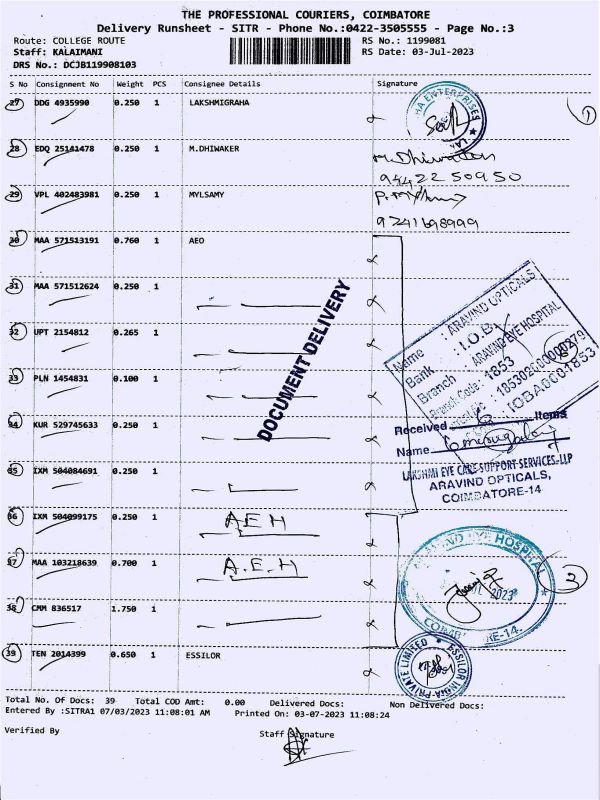 THE PROFESSIONAL COURIERS, COIMBATORE
Delivery Runsheet - SITR - Phone No.:0422-3505555 - Page No.:3
Route: COLLEGE ROUTE RS No.: 1199081
Staff: KALAIMANI RS Date: 03-Jul-2023
DRS No.: DCJB119908103
S No Consignment No Weight PCS Consignee Details Signature
27 DDG 4935990 0.250 1 LAKSHMIGRAHA
HA ENTERPRISES
1
28 EDQ 25141478 0.250 1 M.DHIWAKER
M. Dhiwaker
9442250950
29 VPL 402483981 0.250 1 MYLSAMY
9741698999
30 MAA 571513191 0.760 1 AEO
31 MAA 571512624 0.250 1
32 UPT 2154812 0.265 1
33 PLN 1454831 0.100 1
34 KUR 529745633 0.250 1
35 IXM 504084691 0.250 1
36 IXM 504099175 0.250 1 AEH
37 MAA 103218639 0.700 1 A.E.H
38 CMM 836517 1.750 1
39 TEN 2014399 0.650 1 ESSILOR
DOCUMENT DELIVERY
Name : ARAVIND OPTICALS
Bank : I.O.B
Branch : ARAVIND EYE HOSPITAL
Branch Code : 1853
IOBA0001853
Received Items
Name
LAKSHMI EYE CARE SUPPORT SERVICES-LLP
ARAVIND OPTICALS,
COIMBATORE-14
EYE HOSPITAL
2023
RE-14.
2
PRIVATE LIMITED ★ ESSILOR INDIA
Total No. Of Docs: 39 Total COD Amt: 0.00 Delivered Docs: Non Delivered Docs:
Entered By :SITRA1 07/03/2023 11:08:01 AM Printed On: 03-07-2023 11:08:24
Verified By Staff Signature